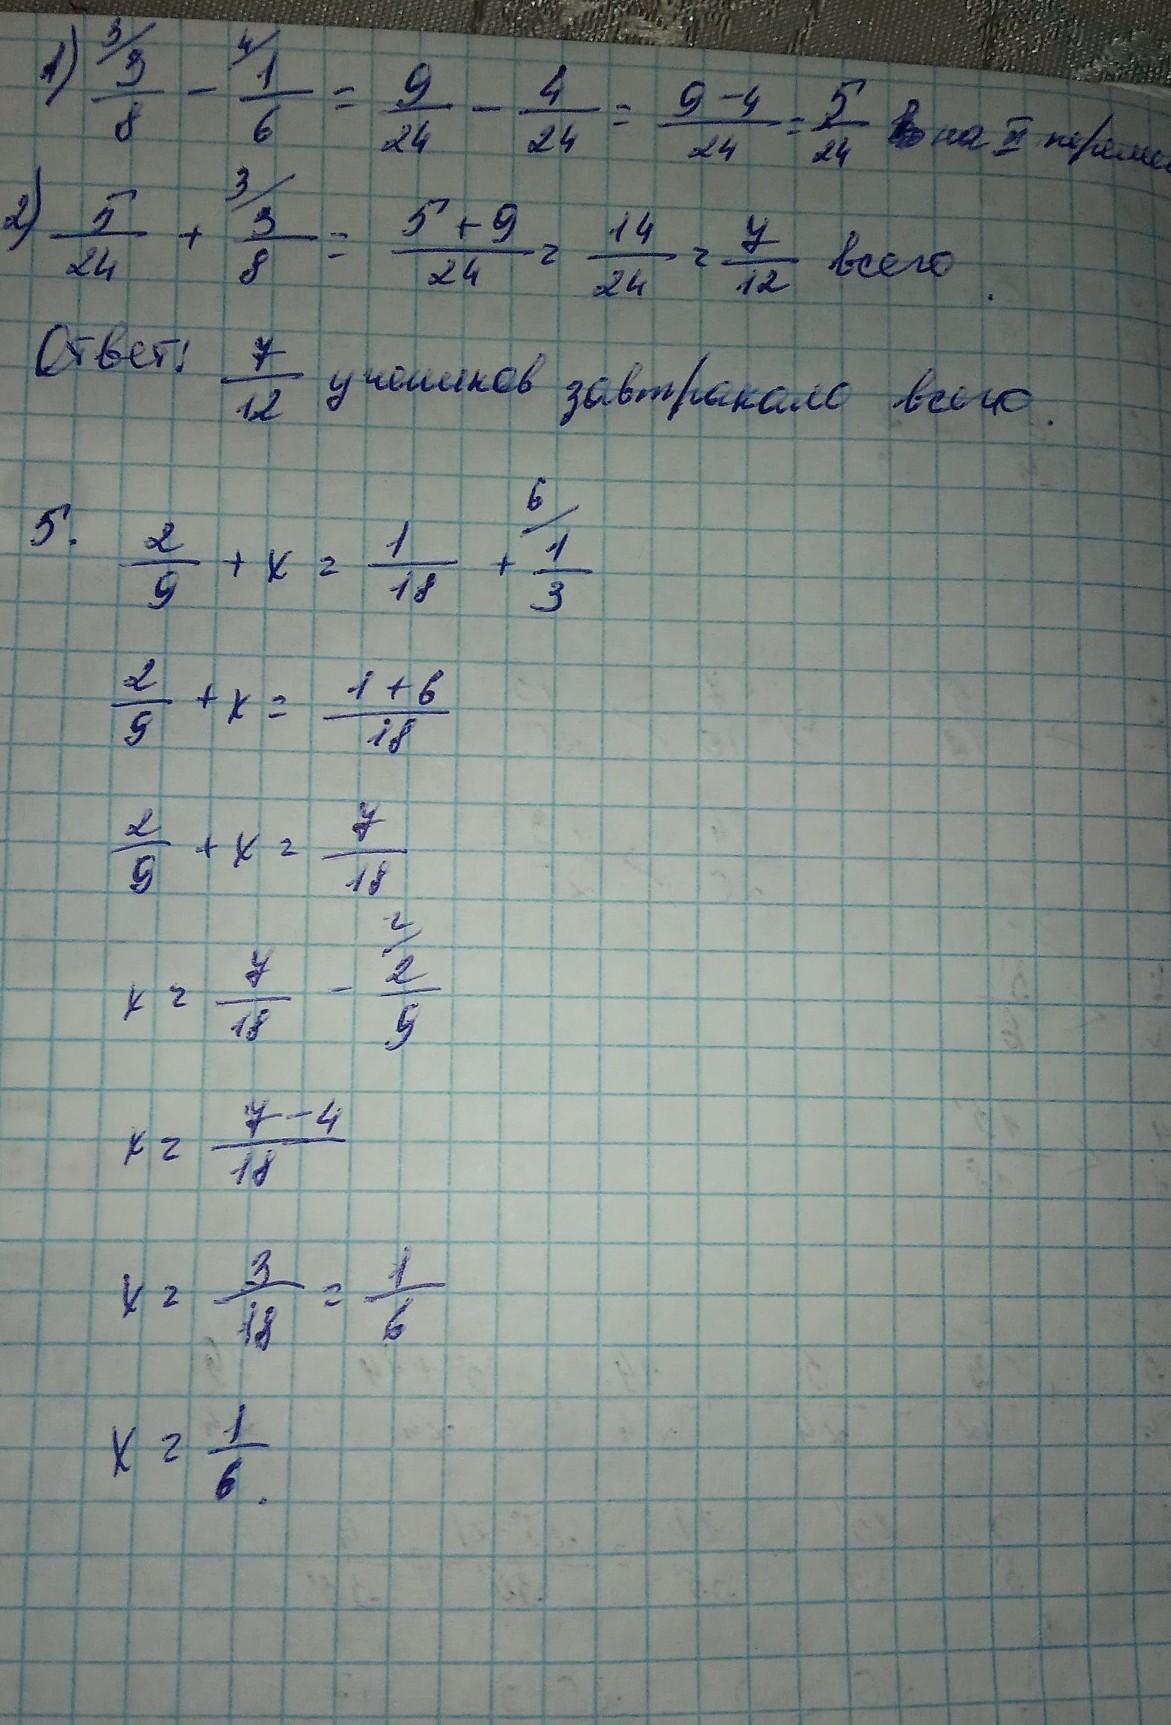 1) 3/ 3/8 - 4/ 1/6 = 9/24 - 4/24 = 9-4/24 = 5/24 на II переме
2) 5/24 + 3/ 3/8 = 5+9/24 = 14/24 = 7/12 всего.
Ответ: 7/12 учеников завтракало всего.
5. 2/9 + x = 1/18 + 6/ 1/3
2/9 + x = 1+6/18
2/9 + x = 7/18
x = 7/18 - 2/ 2/9
x = 7-4/18
x = 3/18 = 1/6
x = 1/6.